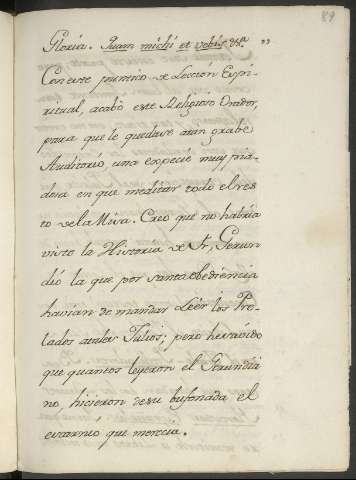 89
Gloria. Quam michi et vobis &ª "
Con este puntito de Lección Espi-
ritual, acabó este Religioso Orador,
para que le quedase a un grabe
Auditorio, una especie muy pia-
dosa en que meditar todo el res
to de la Misa. Creo que no habría
visto la Historia de Fr. Gerun
dió la que por santa obediencia
havian de mandar Leér los Pre-
lados a tales Tulios; pero he sabido
que quantos leyeron el Gerundia
no, hicieron de su bufonada el
escarnio que merecia.